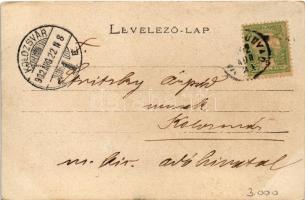 LEVELEZŐ-LAP.
KOLOZSVÁR
902 AUG 22 N 8
Árpád
urnak
Kolozsvár
m. kir. adóhivatal
3.000